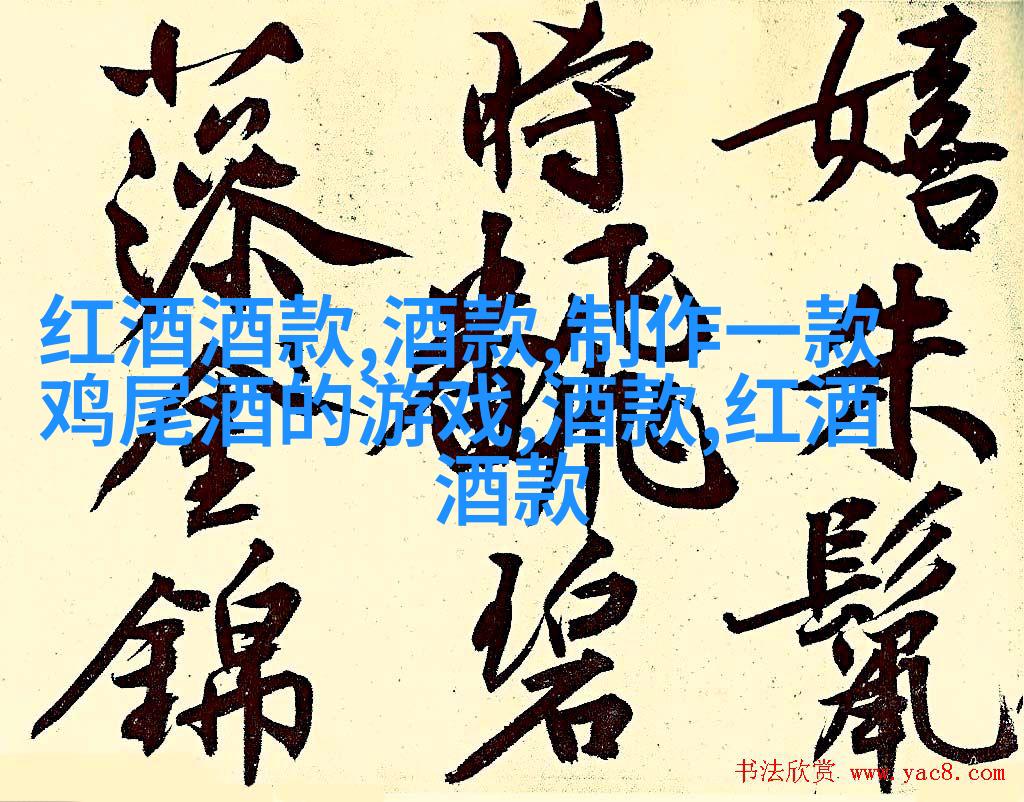 嬉朱鬣
時碧
金錦
红酒酒款,酒款,制作一款
鸡尾酒的游戏,酒款,红酒
酒款
书法欣赏 www.yac8.com